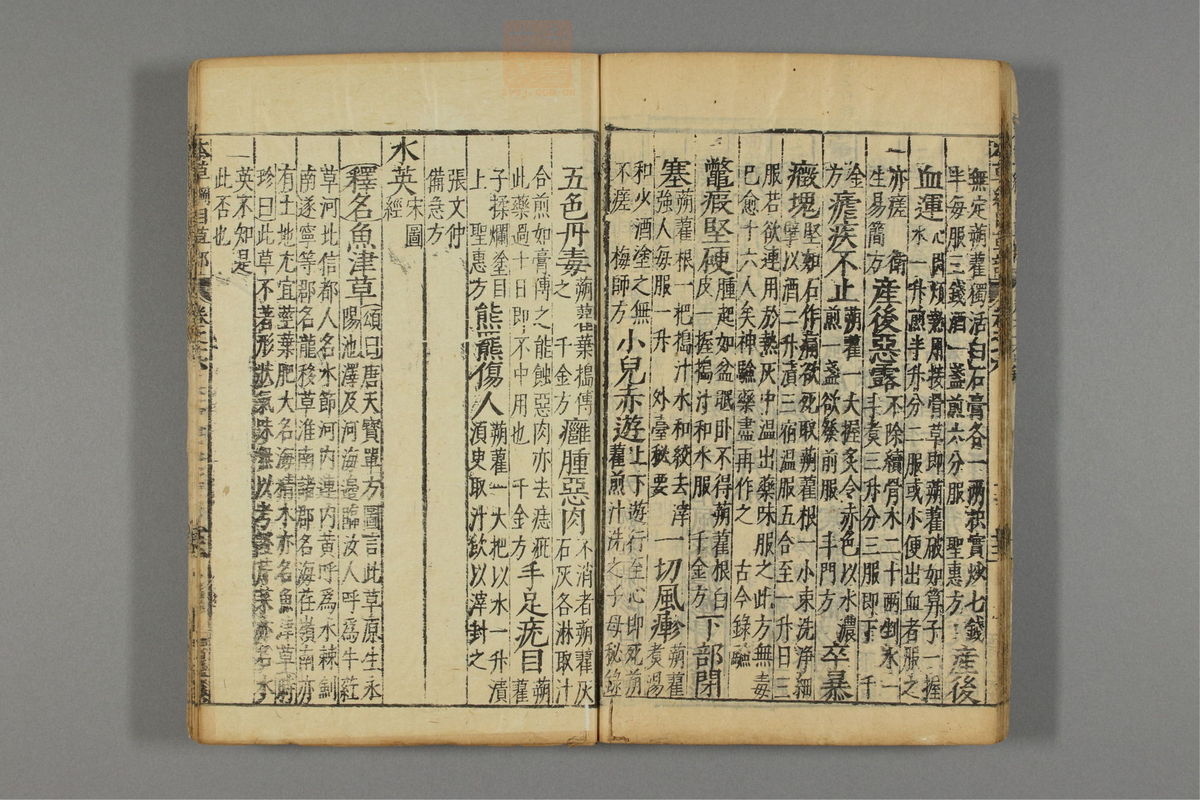 無定蒴藋獨活白石膏各一兩枳實炒七錢
半每服三錢酒一盞煎六分服 聖惠方 產後
血運心悶煩熱用接骨草即蒴藋破如筭子一握
水一升煎半升分二服或小便出血者服之
亦瘥 衛
生易簡方 產後惡露不除續骨木二十兩剉水一
斗煮三升分三服即下 千
金
方 瘧疾不止蒴藋一大握炙令赤色以水濃
煎一盞欲發前服 斗門方 卒暴
癥塊堅如石作痛欲死取蒴藋根一小束洗淨細
擘以酒二升漬三宿溫服五合至一升日三
服若欲速用於熱灰中溫出藥味服之此方無毒
已愈十六人矣神驗藥盡再作之 古今錄驗
鼈瘕堅硬腫起如盆眠卧不得蒴藋根白
皮一握搗汁和水服 千金方 下部閉
塞蒴藋根一把搗汁水和絞去滓
強人每服一升 外臺秘要 一切風瘮蒴藋
煮湯
和火酒塗之無
不瘥 梅師方 小兒赤遊上下遊行至心即死蒴
藋煎汁洗之 子母秘錄
五色丹毒蒴藋葉搗傅
之 千金方 癰腫惡肉不消者蒴藋灰
石灰各淋取汁
合煎如膏傅之能蝕惡肉亦去痣疵
此藥過十日即不中用也 千金方 手足疣目蒴
藋
子揉爛塗目
上 聖惠方 熊羆傷人蒴藋一大把以水一升漬
須臾取汁飲以滓封之
張文仲
備急方
水英宋圖
經
釋名魚津草頌曰唐天寶單方圖言此草原生永
陽池澤及河海邊臨汝人呼為牛葒
草河北信都人名水節河內連內黃呼為水棘劍
南遂寧等郡名龍移草淮南諸郡名海荏嶺南亦
有土地尤宜莖葉肥大名海精木亦名魚津草時
珍曰此草不著形狀氣味無以考證荇菜亦名水
英不知是
此否也